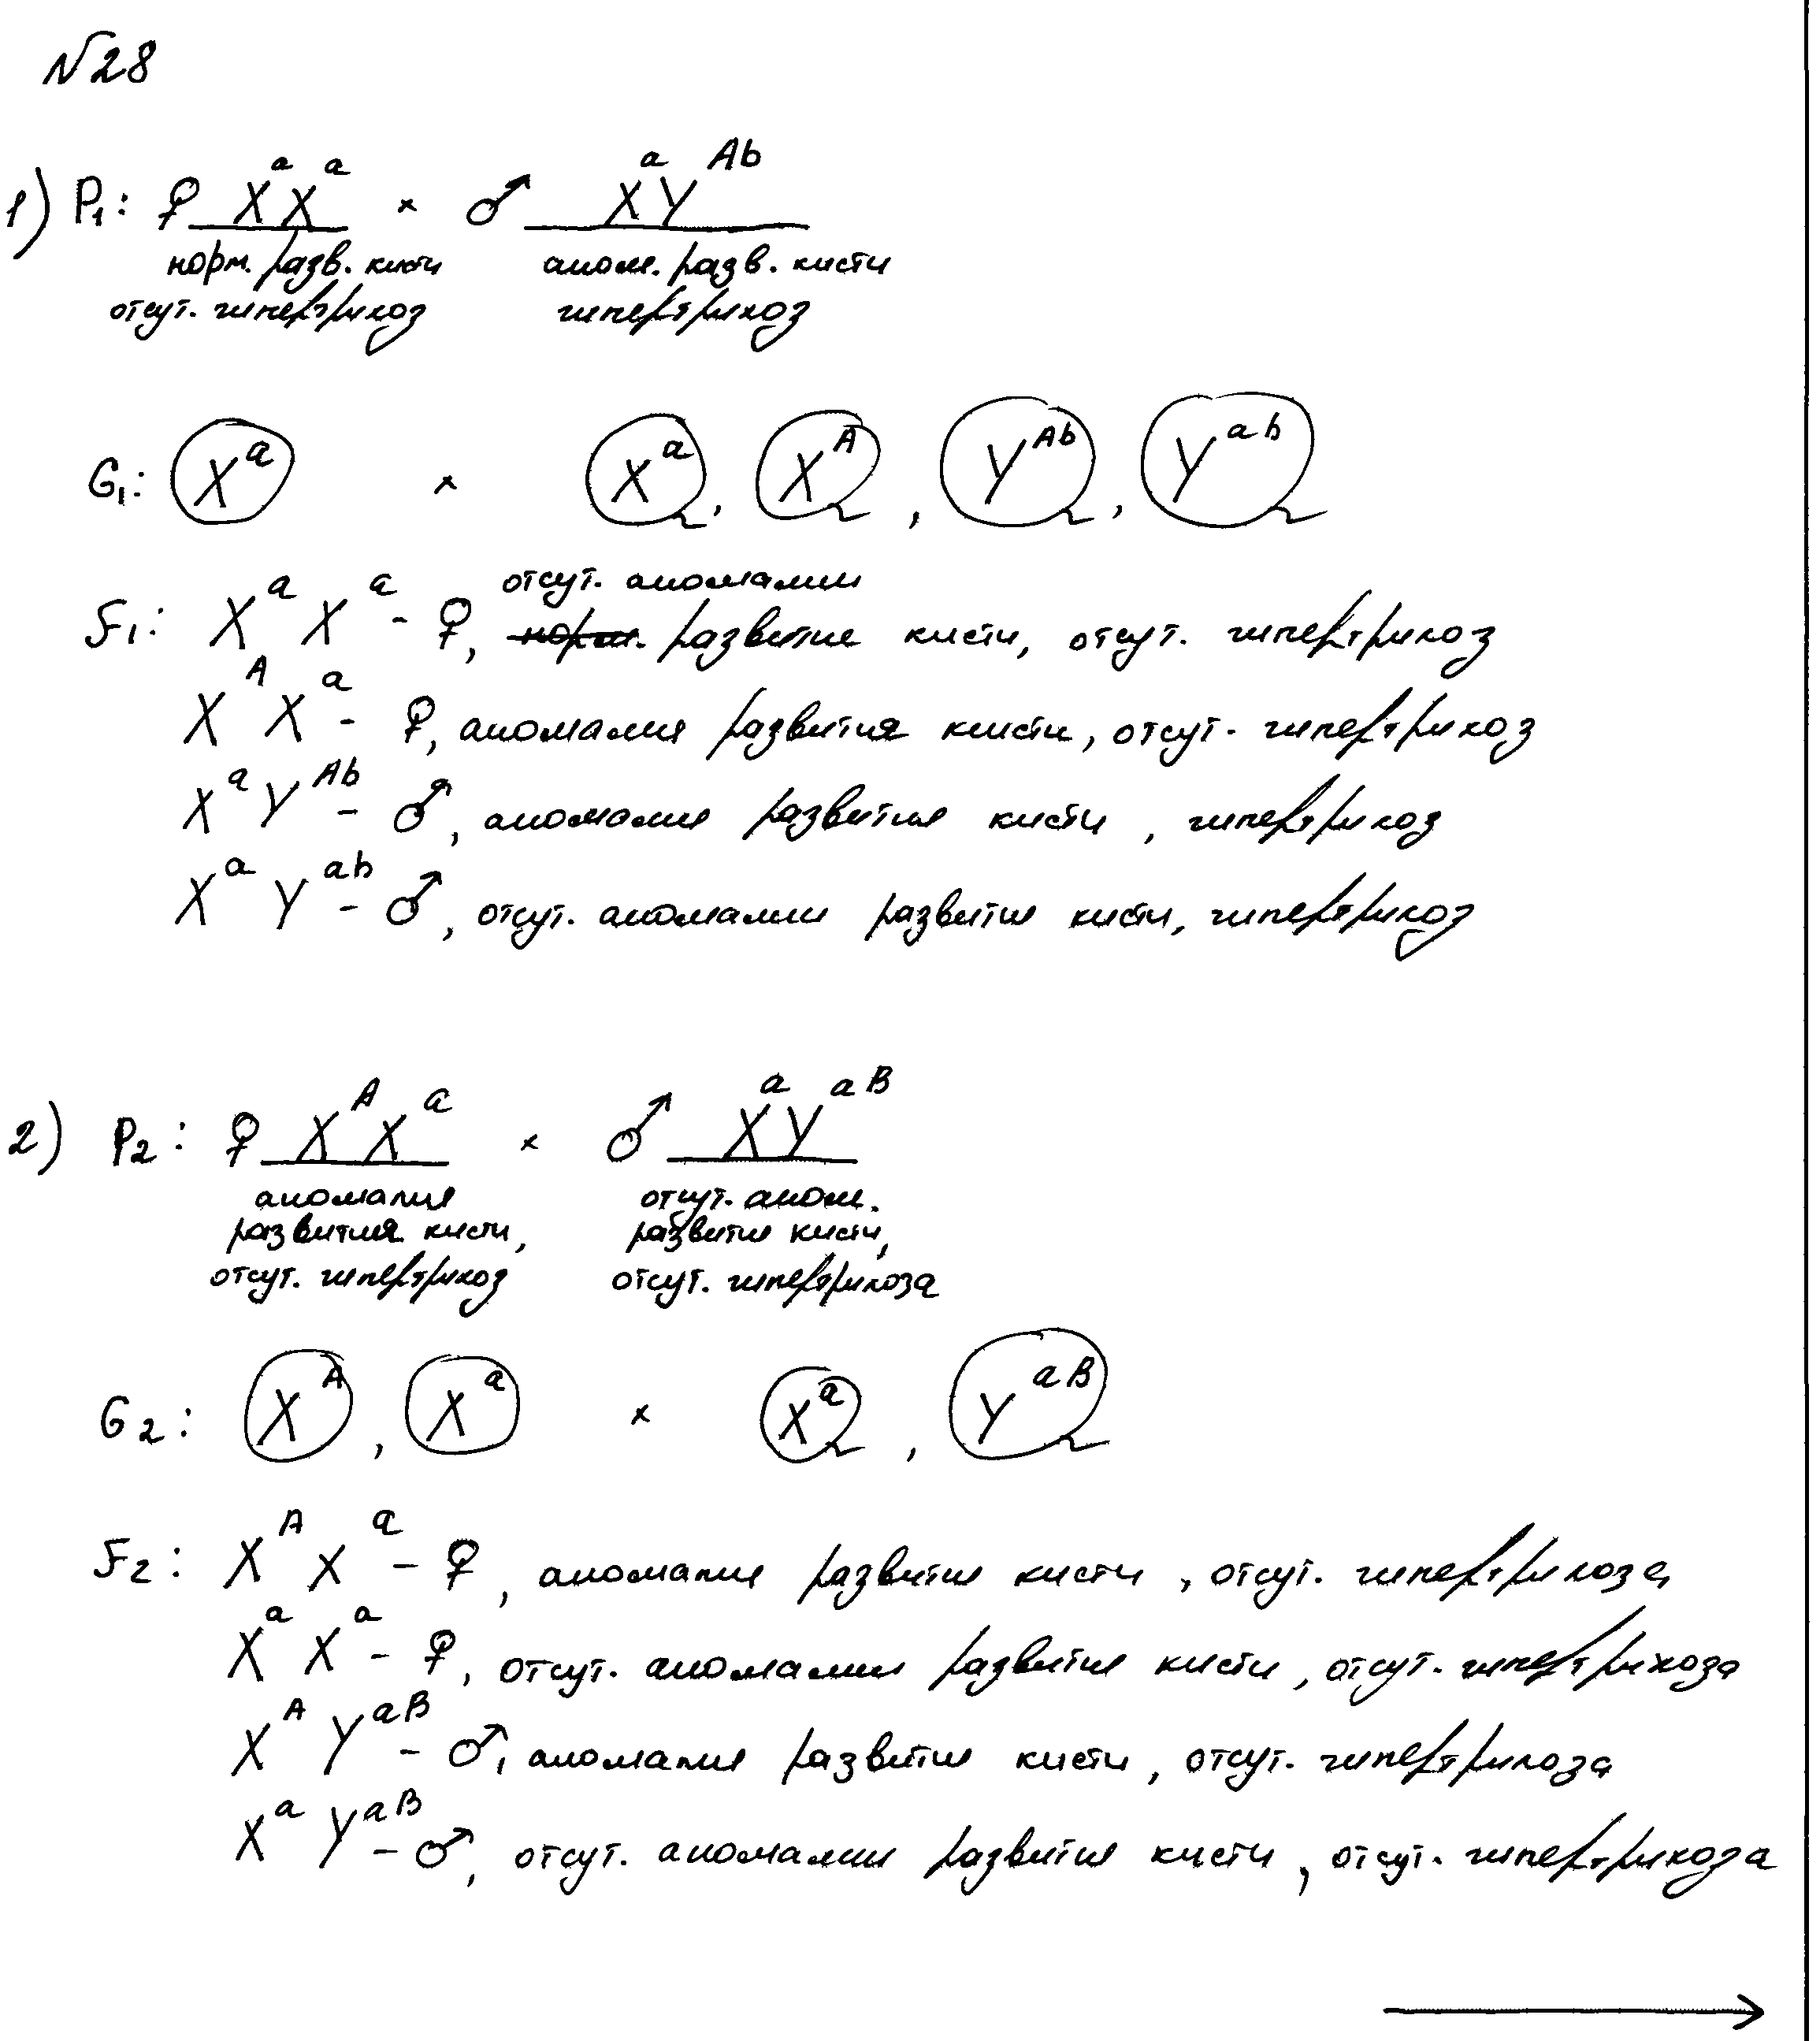 №28
1) P₁: ♀ XᵃXᵃ × ♂ XᵃYᴬᵇ
норм. разв. кисти аном. разв. кисти
отсут. гипертрихоз гипертрихоз
G₁: Xᵃ × Xᵃ, Xᴬ, Yᴬᵇ, Yᵃᵇ
отсут. аномалии
F₁: XᵃXᵃ - ♀, норм. развитие кисти, отсут. гипертрихоз
XᴬXᵃ - ♀, аномалия развития кисти, отсут. гипертрихоз
XᵃYᴬᵇ - ♂, аномалия развития кисти, гипертрихоз
XᵃYᵃᵇ - ♂, отсут. аномалии развития кисти, гипертрихоз
2) P₂: ♀ XᴬXᵃ × ♂ XᵃYᵃᴮ
аномалия отсут. аном.
развития кисти, развития кисти,
отсут. гипертрихоз отсут. гипертрихоза
G₂: Xᴬ, Xᵃ × Xᵃ, Yᵃᴮ
F₂: XᴬXᵃ - ♀, аномалия развития кисти, отсут. гипертрихоза
XᵃXᵃ - ♀, отсут. аномалии развития кисти, отсут. гипертрихоза
XᴬYᵃᴮ - ♂, аномалия развития кисти, отсут. гипертрихоза
XᵃYᵃᴮ - ♂, отсут. аномалии развития кисти, отсут. гипертрихоза